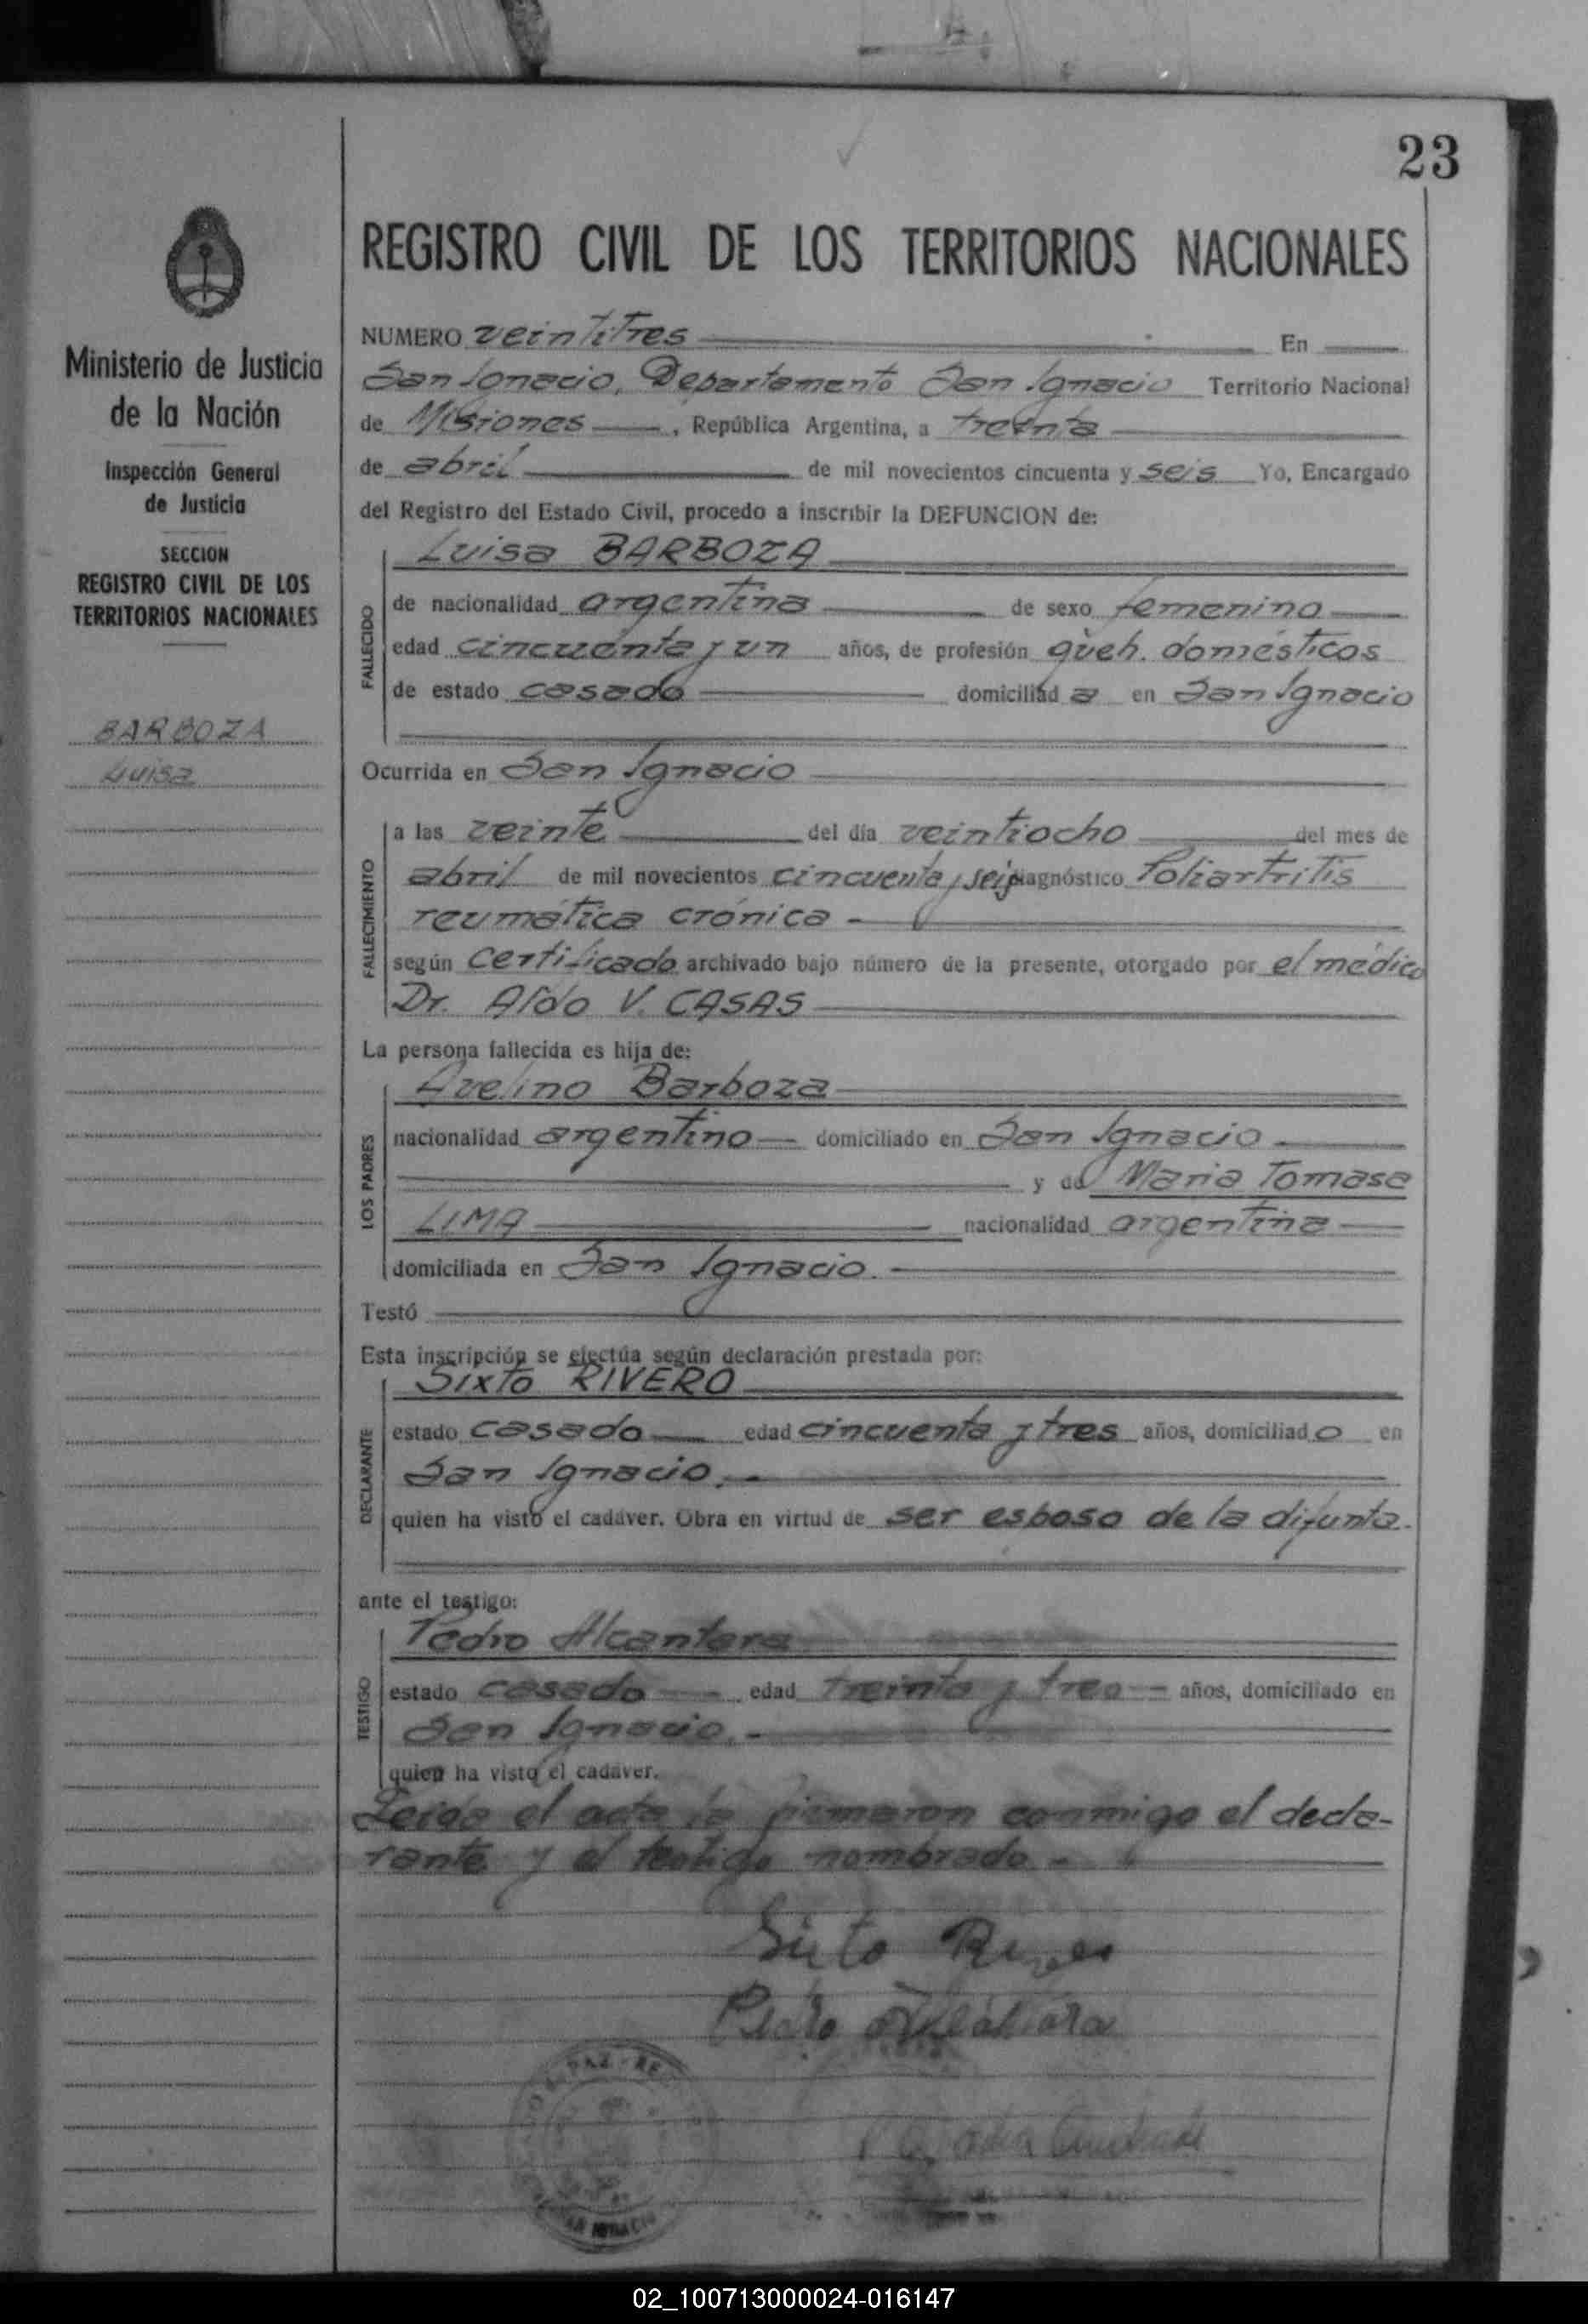 23
REGISTRO CIVIL DE LOS TERRITORIOS NACIONALES
Ministerio de Justicia
de la Nación
Inspección General
de Justicia
SECCION
REGISTRO CIVIL DE LOS
TERRITORIOS NACIONALES
BARBOZA
Luisa
NUMERO veintitres En
San Ignacio, Departamento San Ignacio Territorio Nacional
de Misiones, República Argentina, a treinta
de abril de mil novecientos cincuenta y seis Yo, Encargado
del Registro del Estado Civil, procedo a inscribir la DEFUNCION de:
Luisa BARBOZA
FALLECIDO
de nacionalidad argentina de sexo femenino
edad cincuenta y un años, de profesión queh. domésticos
de estado casada domiciliad a en San Ignacio
Ocurrida en San Ignacio
FALLECIMIENTO
a las veinte del día veintiocho del mes de
abril de mil novecientos cincuenta y seis diagnóstico Poliartritis
reumática crónica -
según certificado archivado bajo número de la presente, otorgado por el médico
Dr. Aldo V. CASAS
La persona fallecida es hija de:
Avelino Barboza
LOS PADRES
nacionalidad argentino domiciliado en San Ignacio
y de Maria Tomasa
LIMA nacionalidad argentina
domiciliada en San Ignacio.
Testó
Esta inscripción se efectúa según declaración prestada por:
Sixto RIVERO
DECLARANTE
estado casado edad cincuenta y tres años, domiciliad o en
San Ignacio.
quien ha visto el cadáver. Obra en virtud de ser esposo de la difunta.
ante el testigo:
Pedro Alcantara
TESTIGO
estado casado edad treinta y tres años, domiciliado en
San Ignacio.
quien ha visto el cadáver.
Leida el acta la firmaron conmigo el decla-
rante y el testigo nombrado.-
Sixto
Pedro Alcantara
PAZ
SAN IGNACIO
02_100713000024-016147